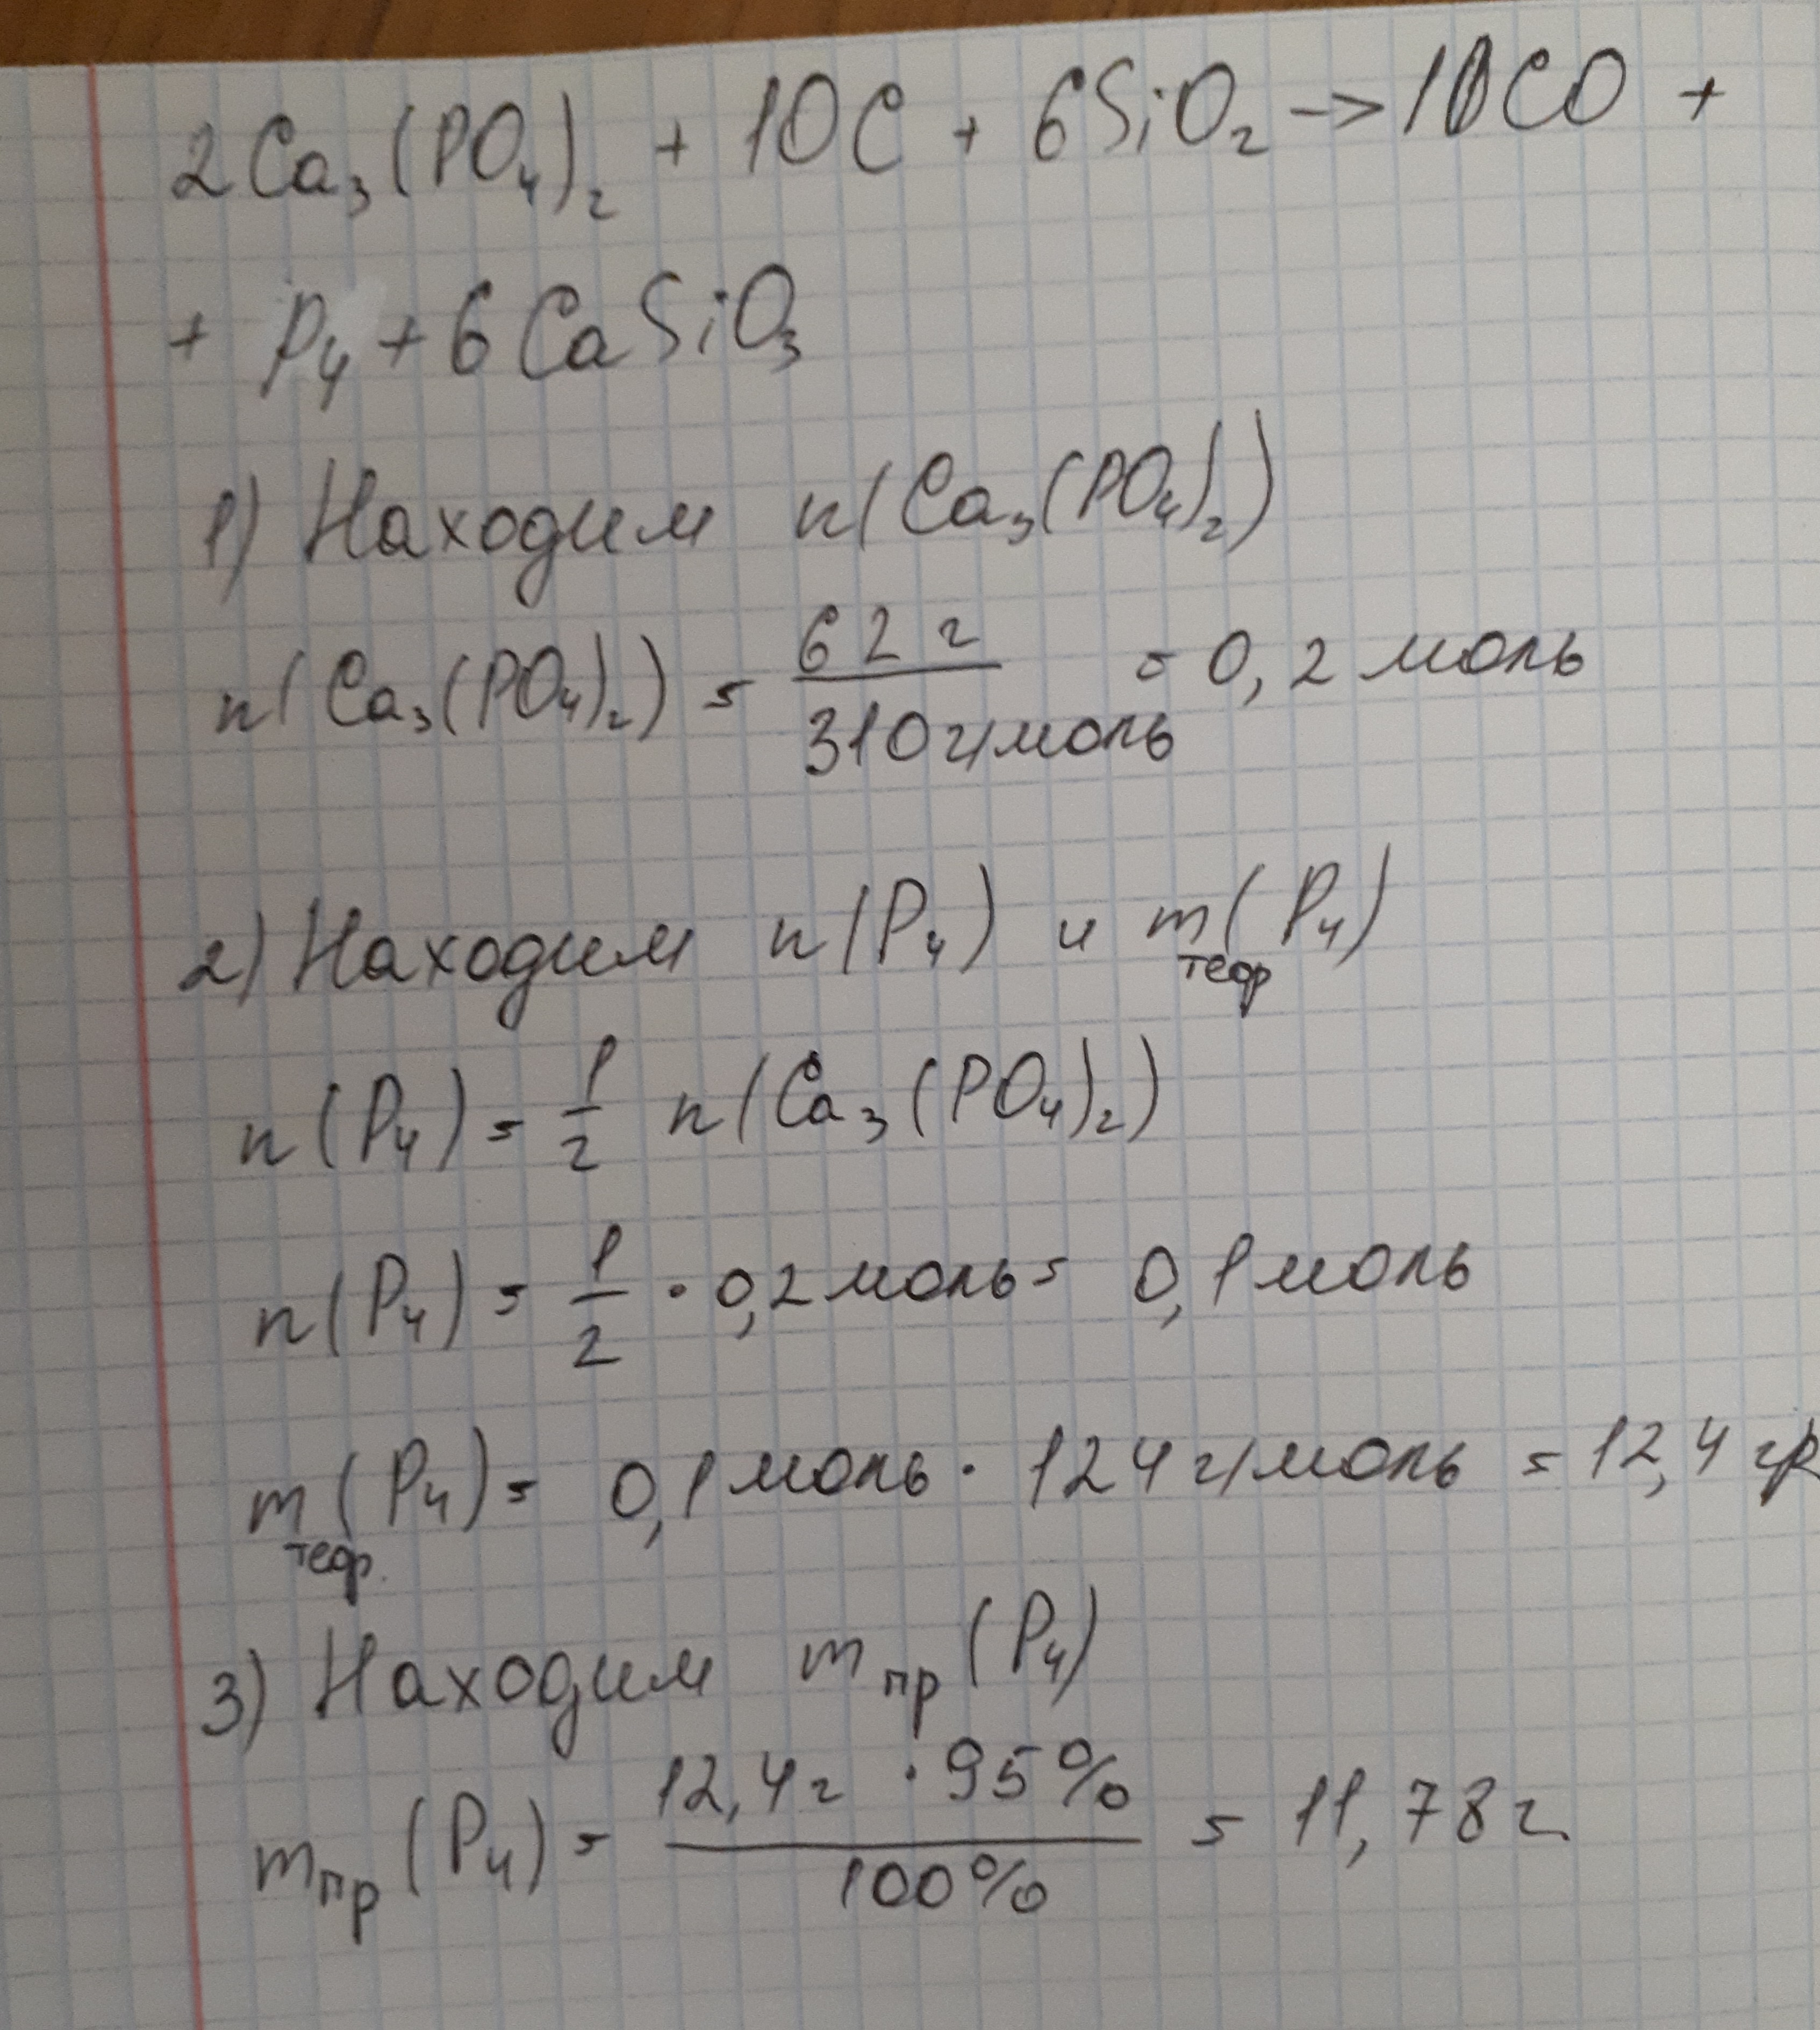 2Ca₃(PO₄)₂ + 10C + 6SiO₂ -> 10CO +
+ P₄ + 6CaSiO₃
1) Находим n(Ca₃(PO₄)₂)
n(Ca₃(PO₄)₂) = 62 г / 310 г/моль = 0,2 моль
2) Находим n(P₄) и m теор (P₄)
n(P₄) = 1/2 n(Ca₃(PO₄)₂)
n(P₄) = 1/2 · 0,2 моль = 0,1 моль
m теор. (P₄) = 0,1 моль · 124 г/моль = 12,4 гр
3) Находим m пр (P₄)
m пр (P₄) = 12,4 г · 95% / 100% = 11,78 г